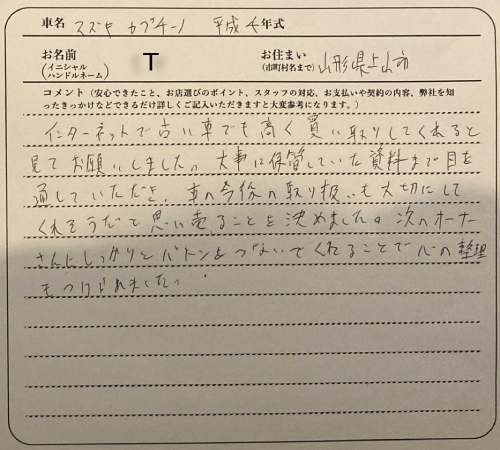 車名 スズキ カプチーノ 平成4年式
お名前 (イニシャル ハンドルネーム) T お住まい (市町村名まで) 山形県上山市
コメント(安心できたこと、お店選びのポイント、スタッフの対応、お支払いや契約の内容、弊社を知
ったきっかけなどできるだけ詳しくご記入いただきますと大変参考になります。)
インターネットで古い車でも高く買い取りしてくれると
見てお願いしました。大事に保管していた資料まで目を
通していただき、車の今後の取り扱いも大切にして
くれそうだと思い売ることを決めました。次のオーナー
さんにしっかりとバトンをつないでくれることで心の整理
もつけられました。